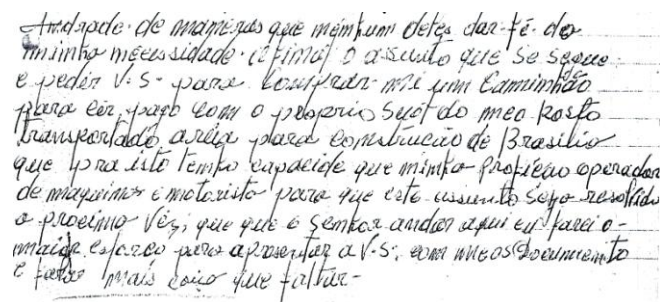 Andrade de maneiras que nenhum deles dar-fé do
minha necessidade. o assunto que se segue
e pedir V.S. para comprar-mi um Caminhão
para cer pago com o proprio suot do meo Rosto
transportado areia para construcão de Brasilio
que pra isto tenho capacide que minha Profição operador
de maquinas e motoristo para que este assunto seja resolvido
o procimo vês, que que o senhor andar aqui eu farei o
maior esforco para aprosentar a V.S. com meos Documento
e mais coiso que faltar-